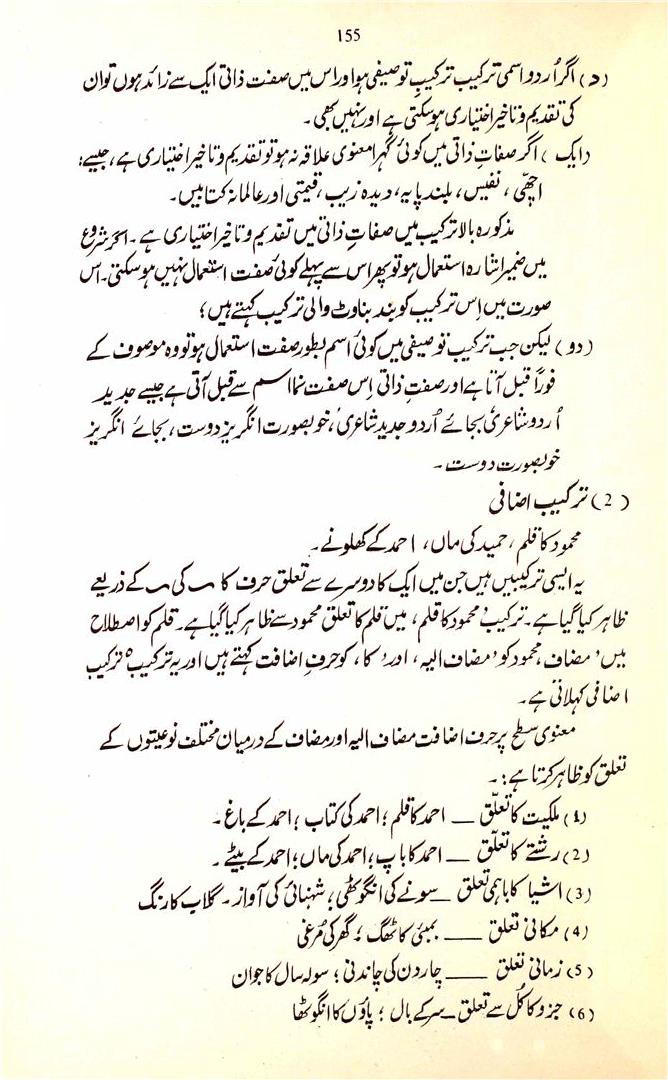 155
(د) اگر اُردو اسمی ترکیب ترکیبِ توصیفی ہو اور اس میں صفت ذاتی ایک سے زائد ہوں تو ان
کی تقدیم و تاخیر اختیاری ہو سکتی ہے اور نہیں بھی۔
(ایک) اگر صفاتِ ذاتی میں کوئی گہرا معنوی علاقہ نہ ہو تو تقدیم و تاخیر اختیاری ہے، جیسے:
اچھّی، نفیس، بلند پایہ، دیدہ زیب، قیمتی اور عالمانہ کتابیں۔
مذکورہ بالا ترکیب میں صفاتِ ذاتی میں تقدیم و تاخیر اختیاری ہے۔ اگر شروع
میں ضمیر اشارہ استعمال ہو تو پھر اس سے پہلے کوئی صفت استعمال نہیں ہو سکتی۔ اس
صورت میں اِس ترکیب کو بند بناوٹ والی ترکیب کہتے ہیں؛
(دو) لیکن جب ترکیب توصیفی میں کوئی اسم بطور صفت استعمال ہو تو وہ موصوف کے
فوراً قبل آتا ہے اور صفتِ ذاتی اِس صفت نما اسم سے قبل آتی ہے جیسے جدید
اُردو شاعری بجائے اُردو جدید شاعری، خوبصورت انگریز دوست، بجائے انگریز
خوبصورت دوست۔
(2) ترکیب اضافی
محمود کا قلم، حمید کی ماں، احمد کے کھلونے۔
یہ ایسی ترکیبیں ہیں جن میں ایک کا دوسرے سے تعلق حرف کا ۔ کی ۔ کے ذریعے
ظاہر کیا گیا ہے۔ ترکیب 'محمود کا قلم، میں قلم کا تعلق محمود سے ظاہر کیا گیا ہے۔ قلم کو اصطلاح
میں 'مضاف، محمود کو 'مضاف الیہ، اور 'کا، کو حرفِ اضافت کہتے ہیں اور یہ ترکیب 'ترکیب
اضافی کہلاتی ہے۔
معنوی سطح پر حرف اضافت مضاف الیہ اور مضاف کے درمیان مختلف نوعیتوں کے
تعلق کو ظاہر کرتا ہے:۔
(1) ملکیت کا تعلّق — احمد کا قلم؛ احمد کی کتاب؛ احمد کے باغ۔
(2) رشتے کا تعلّق — احمد کا باپ؛ احمد کی ماں؛ احمد کے بیٹے۔
(3) اشیا کا باہمی تعلق — سونے کی انگوٹھی؛ شہنائی کی آواز۔ گلاب کا رنگ
(4) مکانی تعلق — بمبئی کا ٹھگ؛ گھر کی مُرغی
(5) زمانی تعلق — چار دن کی چاندنی؛ سولہ سال کا جوان
(6) جزو کا کُل سے تعلق — سر کے بال؛ پاؤں کا انگوٹھا